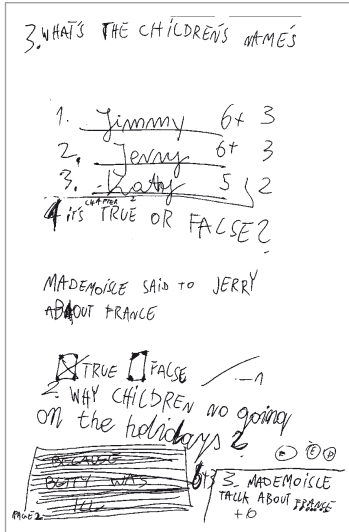 3. WHAT'S THE CHILDREN'S NAME'S
1. Jimmy 6+ 3
2. Jerry 6+ 3
3. Kathy 5 2
CHAPTER 2
4 it's TRUE OR FALSE?
MADEMOISLE SAID TO JERRY
ABOUT FRANCE
TRUE FALSE
2. WHY CHILDREN NO going
on the holidays?
BECAUSE
BETTY WAS
ILL
3. MADEMOISLE
TALK ABOUT FRANCE
+10
PAGE 2